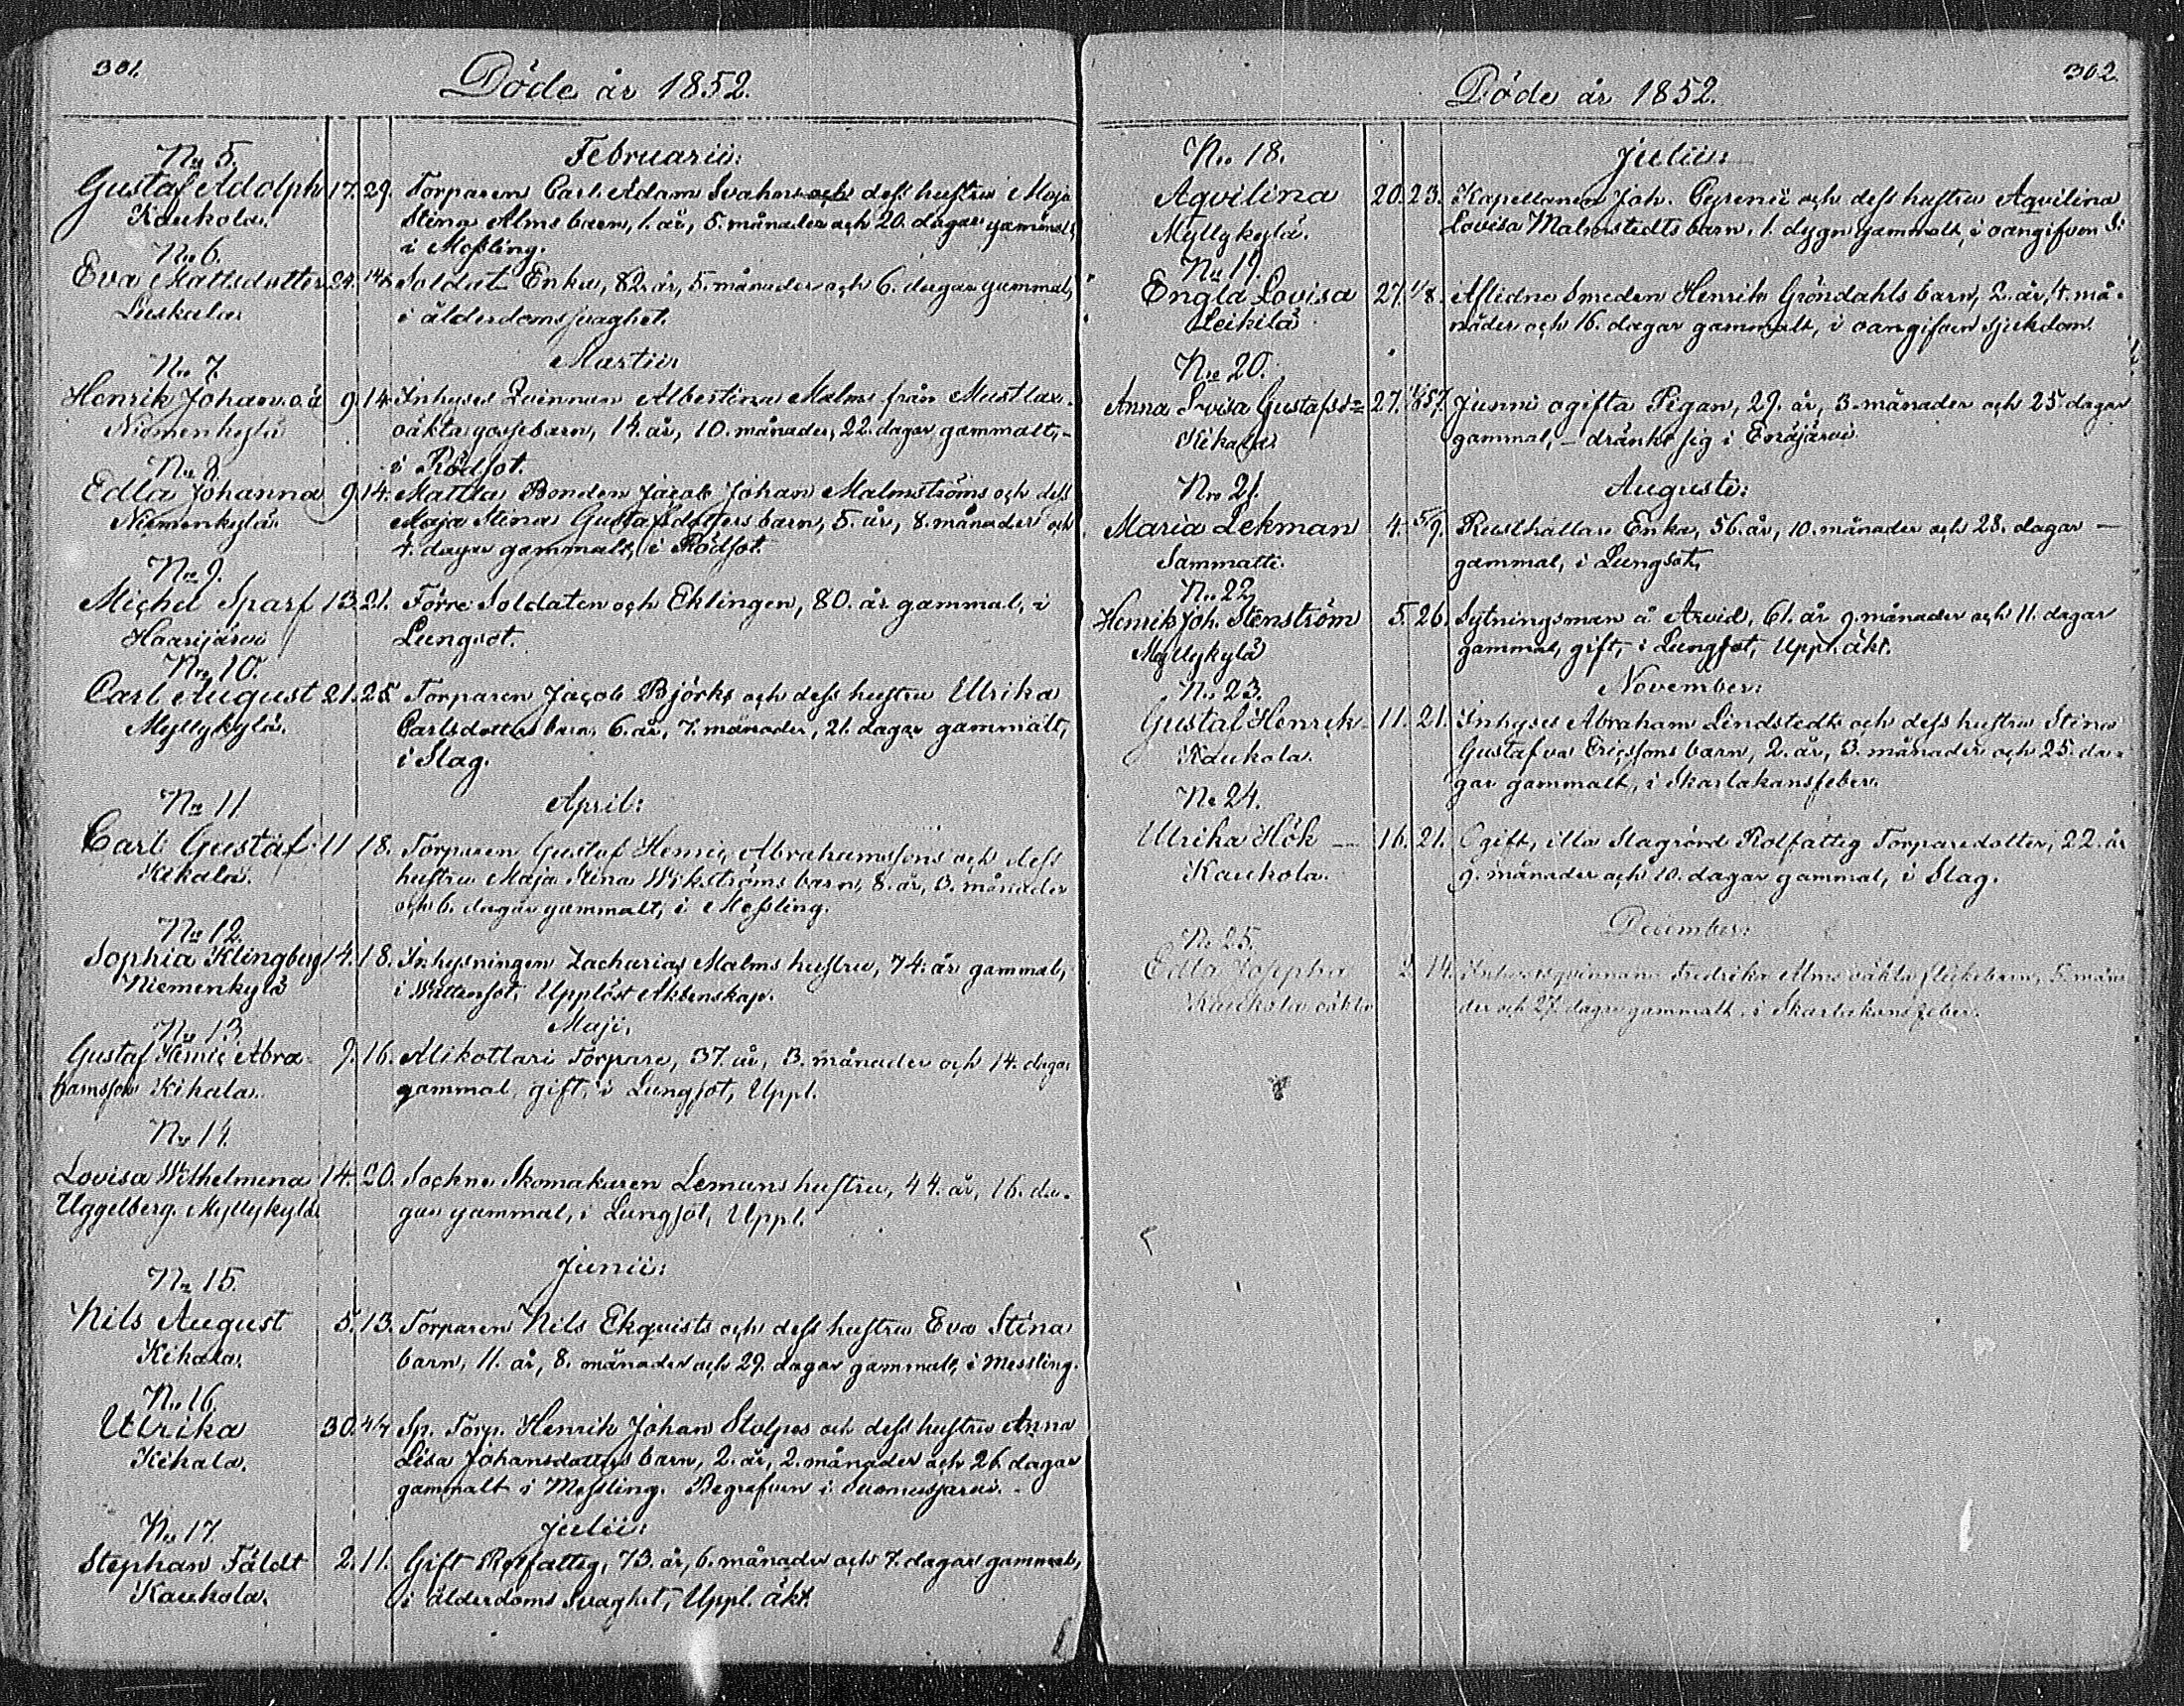 301.
Döde år 1852.
No 5. Februarii:
Gustaf Adolph 17. 29. Torparen Carl Adam Svahns och dess hustru Maja
Kaukola. Stina Alms barn, 1. år, 5. månader och 20. dagar gammalt,
i Messling.
No 6.
Eva Mattsdotter 24. 14/3 Soldat Enka, 82. år, 5. månader och 6. dagar gammal,
Luskala i ålderdomssvaghet.
No 7. Martii
Henrik Johan o.ä 9. 14. Inhyses Qvinnan Albertina Malms från Mustlax
Niemenkylä oäkta gossebarn, 14. år, 10. månader, 22. dagar gammalt, -
i Rödsot.
No 8.
Edla Johanna 9. 14. Mattla Bonden Jacob Johan Malmströms och dess
Niemenkylä. Maja Stina Gustafsdotters barn, 5. år, 8. månader och
4. dagar gammalt, i Rödsot.
No 9.
Michel Sparf 13. 21. Förre Soldaten och Eklingen, 80. år gammal, i
Haarijärvi Lungsot.
No 10.
Carl August 21. 25 Torparen Jacob Björks och dess hustru Ulrika
Myllykylä. Carlsdotters barn, 6. år, 7. månader, 21. dagar gammalt,
i Slag.
No 11 April:
Carl Gustaf 11 18. Torparen Gustaf Henric Abrahamssons och dess
Kikala. hustru Maja Stina Wikströms barn, 8. år, 3. månader
och 6. dagar gammalt, i Messling.
No 12.
Sophia Klingberg 14. 18. Inhysningen Zacharias Malms hustru, 74. år gammal,
Niemenkylä i Wattensot, Upplöst Äktenskap.
No 13. Maji,
Gustaf Henric Abra- 9. 16. Alikottari Torpare, 37. år, 3. månader och 14. dagar
hamsson Kikala. gammal, gift, i Lungsot, Uppl.
No 14.
Lovisa Wilhelmina 14. 20. Sockne Skomakaren Lemans hustru, 44. år, 16. da-
Uggelberg. Myllykylä. gar gammal, i Lungsot, Uppl.
No 15. Junii:
Nils August 5. 13. Torparen Nils Ekqvists och dess hustru Eva Stina
Kikala. barn, 11. år, 8. månader och 29. dagar gammalt, i Messling.
No 16.
Ulrika 30. 4/7 Sp. Torp. Henrik Johan Stolpes och dess hustru Anna
Kikala. Lisa Johansdotters barn, 2. år, 2. månader och 26. dagar
gammalt i Messling. Begrafven i Suomusjärvi. -
No 17. Julii:
Stephan Fäldt 2. 11. Gift Rotfattig, 73. år, 6. månader och 7. dagar gammal,
Kaukola. i ålderdoms Svaghet, Uppl. äkt.
302.
Döde år 1852.
No 18. Julii:
Aqvilina 20. 23. Kapellanen Joh. Cyrenii och dess hustru Aqvilina
Myllykylä. Lovisa Malmstedts barn, 1. dygn gammalt, i oangifven S:
No 19.
Engla Lovisa 27. 1/8. Aflidne Smeden Henrik Gröndahls barn, 2. år, 4. må-
Leikilä nader och 16. dagar gammalt, i oangifven sjukdom.
No 20.
Anna Lovisa Gustafsd= 27. Junni ogifta Pigan, 29. år, 3. månader och 25 dagar
Kikala gammal, - dränkt sig i Enäjärvi
No 21. Augusti:
Maria Lekman 4. 5/9. Rusthållare Enka, 56. år, 10. månader och 28. dagar -
Sammatti. gammal, i Lungsot.
No 22
Henrik Joh. Stenström 5. 26. Sytningsman å Arvid, 61. år 9. månader och 11. dagar
Myllykylä gammal, gift, i Lungsot, Uppl. äkt.
No 23. November:
Gustaf Henrik 11. 21. Inhyses Abraham Lindstedts och dess hustru Stina
Kaukola. Gustafva Ericssons barn, 2. år, 3. månader och 25. da-
gar gammalt, i Skarlakansfeber.
No 24.
Ulrika Hök - 16. 21. Ogift, illa Slagrörd Rotfattig Torparedotter, 22. år
Kaukola. 9. månader och 10. dagar gammal, i Slag.
No 25. December:
Edla Sophia 2. 14. Fredrika Alms oäkta flickebarn, 5. måna
Kaukola oäkta der och 27. dagar gammalt i Skarlakansfeber.